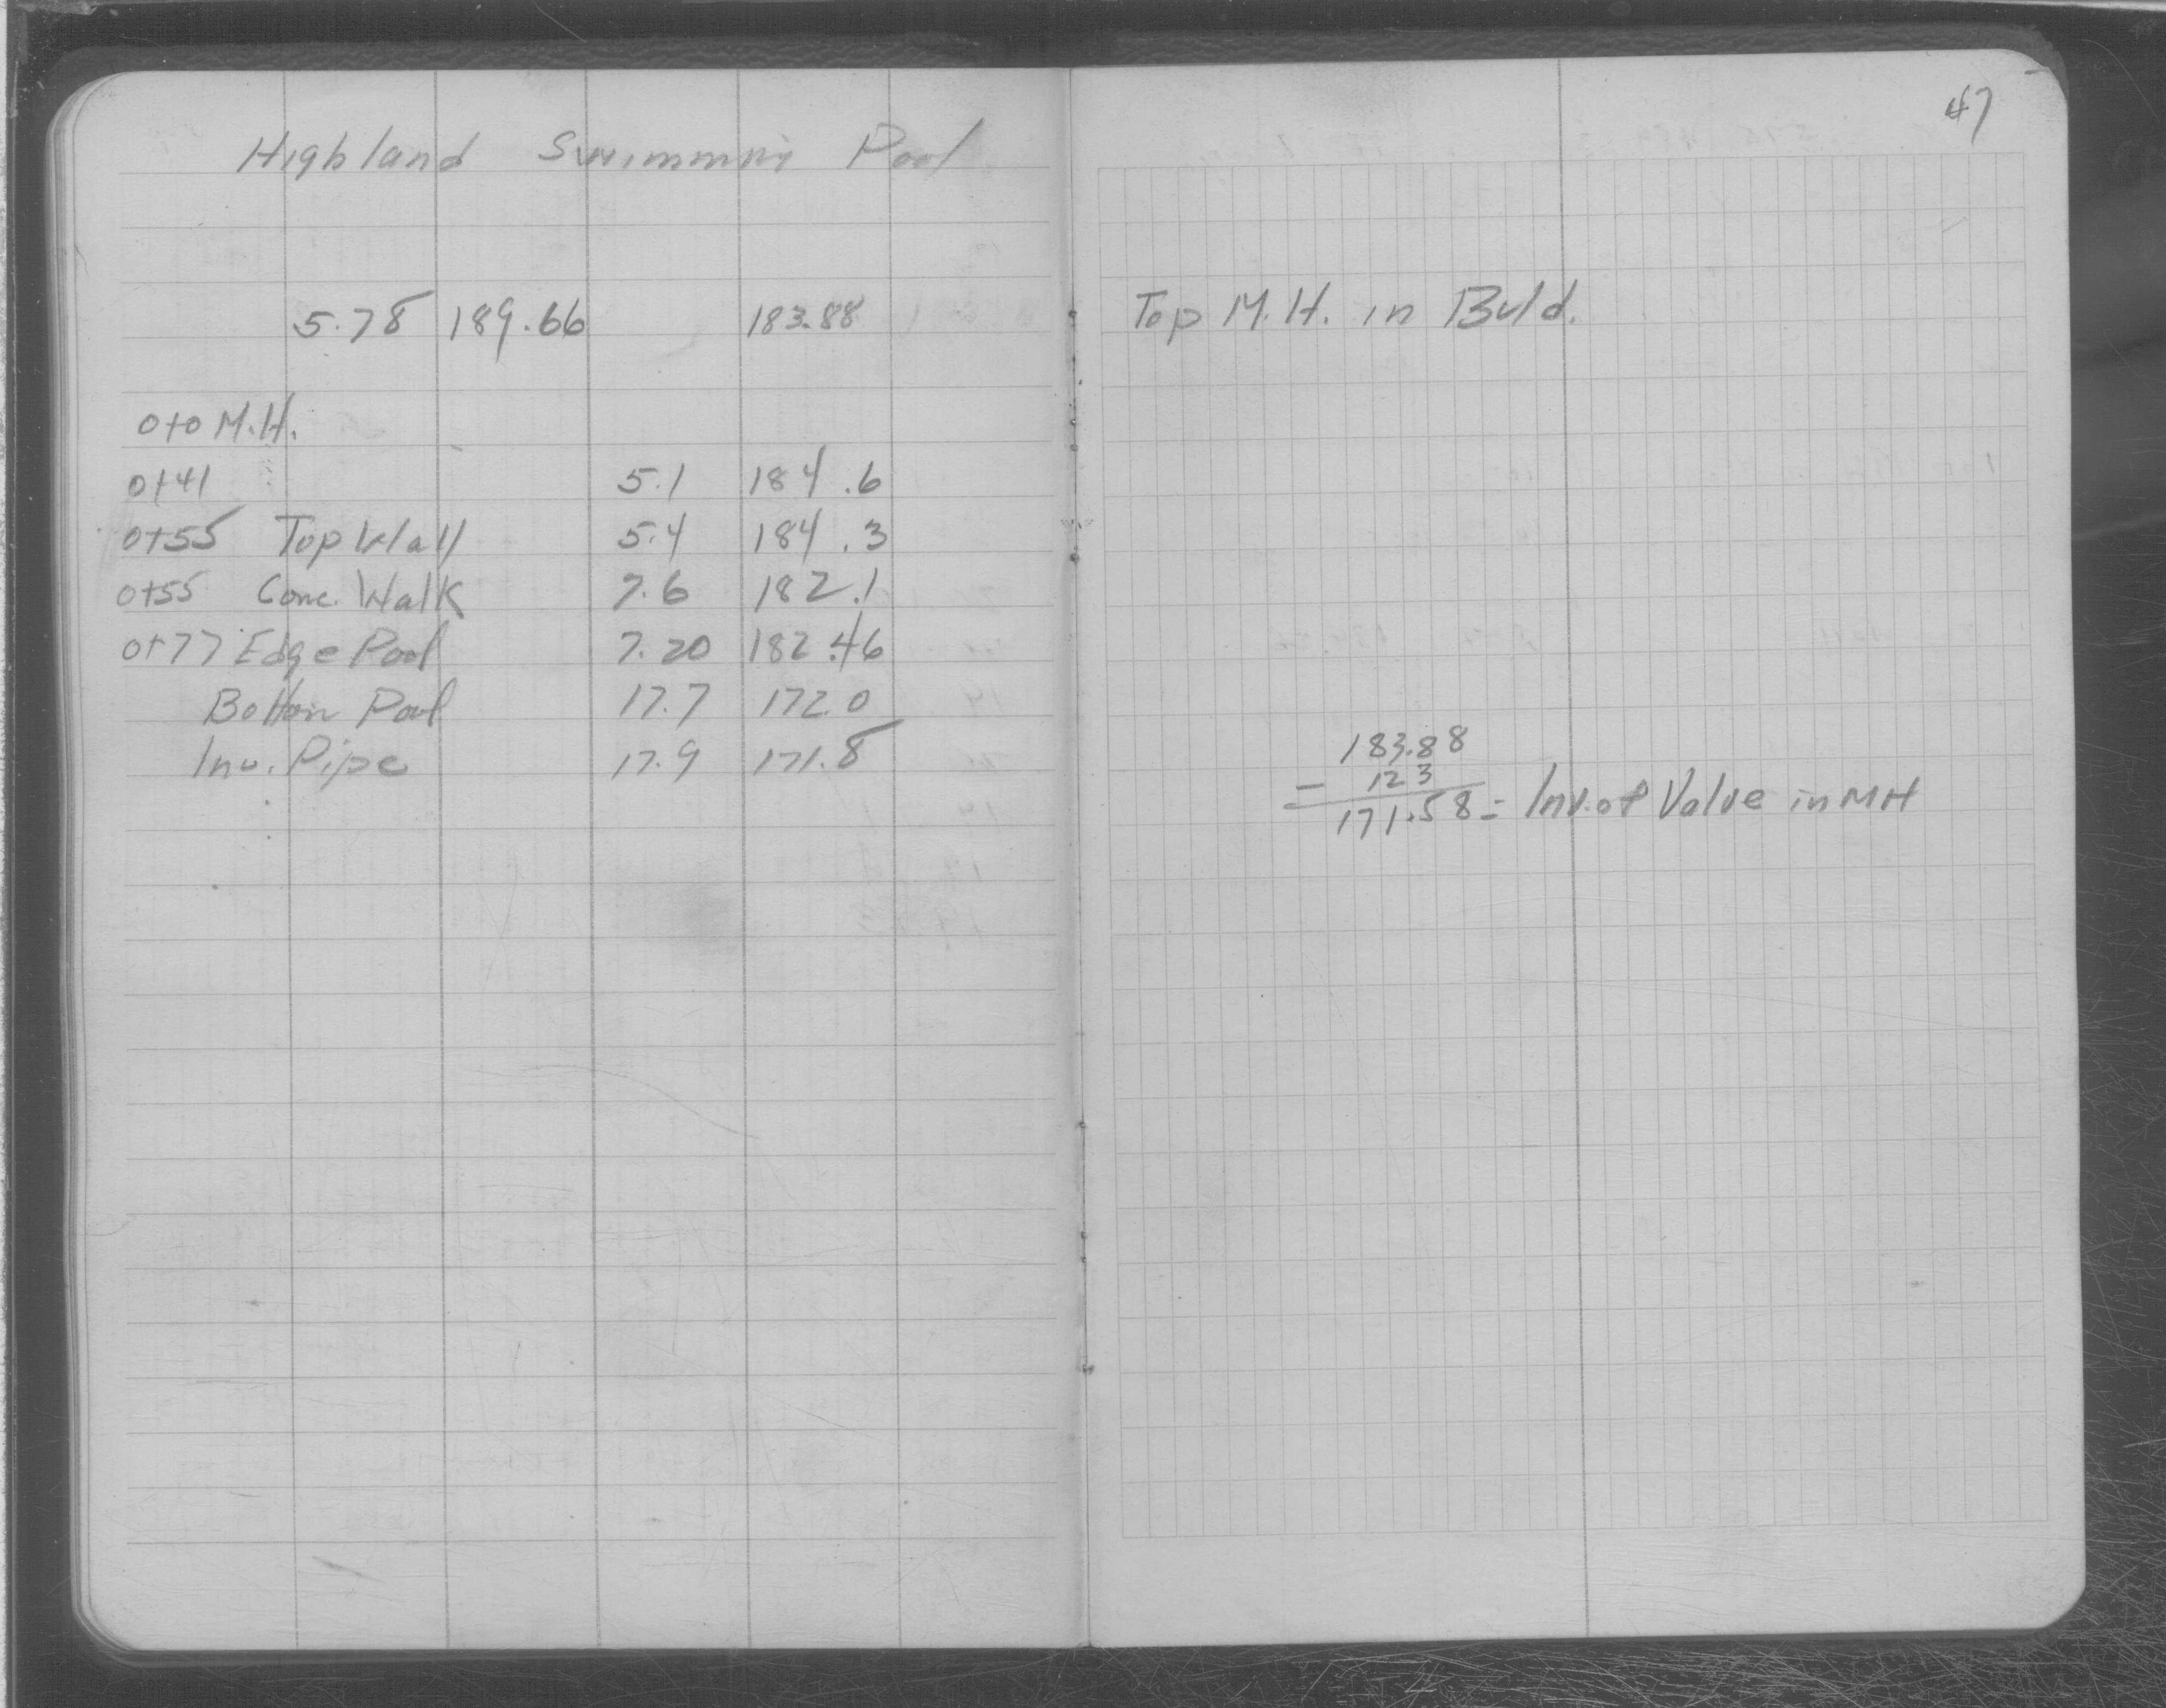 Highland Swimming Pool
5.78 189.66 183.88
0+0 M.H.
0+41 5.1 184.6
0+55 Top Wall 5.4 184.3
0+55 Conc. Walk 7.6 182.1
0+77 Edge Pool 7.20 182.46
Bottom Pool 17.7 172.0
Inv. Pipe 17.9 171.8
47
Top M.H. in Buld.
183.88
- 123
171.58 = Inv. of Valve in MH